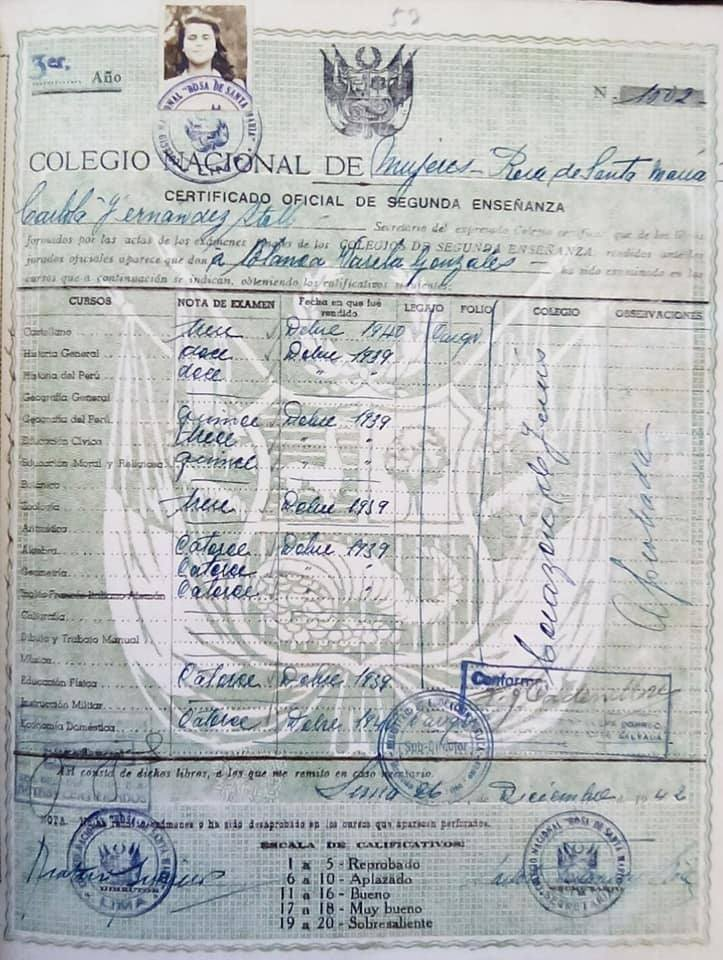 59
3er. Año
Nº 1502
COLEGIO NACIONAL DE Mujeres - Rosa de Santa María
CERTIFICADO OFICIAL DE SEGUNDA ENSEÑANZA
Carlota Fernandez Secretario del expresado Colegio certifica: que de los libros
formados por las actas de los exámenes de los COLEGIOS DE SEGUNDA ENSEÑANZA, rendidos ante los
jurados oficiales aparece que don a Blanca Varela Gonzales ha sido examinado en los
cursos que a continuación se indican, obteniendo los calificativos
CURSOS NOTA DE EXAMEN Fecha en que fué rendido LEGAJO FOLIO COLEGIO OBSERVACIONES
Castellano trece Dcbre 1940
Historia General doce Dcbre 1939
Historia del Perú doce " "
Geografía General
Geografía del Perú quince Dcbre 1939
Educación Cívica trece " "
Educación Moral y Religiosa quince " "
Botánica
Zoología trece Dcbre 1939
Aritmética
Algebra Catorce Dcbre 1939
Geometría Catorce " "
Inglés Francés Italiano Alemán Catorce " "
Caligrafía
Dibujo y Trabajo Manual
Música
Educación Física Catorce Dcbre 1939
Instrucción Militar
Economía Doméstica Catorce Dcbre
Corazón de Jesús
Aprobada
Conforme
Así consta de dichos libros, a los que me remito en caso necesario.
Lima 26 de Diciembre de 1942
NOTA. exámenes o ha sido desaprobado en los cursos que aparecen perforados.
ESCALA DE CALIFICATIVOS:
1 a 5 - Reprobado
6 a 10 - Aplazado
11 a 16 - Bueno
17 a 18 - Muy bueno
19 a 20 - Sobresaliente
DIRECTOR
LIMA
COLEGIO NACIONAL "ROSA DE SANTA MARIA"
SECRETARIA